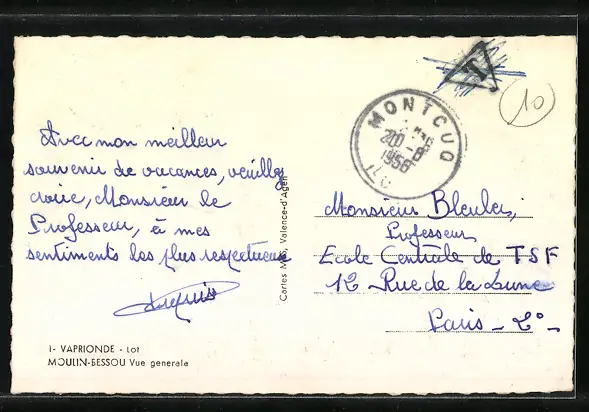 Avec mon meilleur
souvenir de vacances, veuillez
croire, Monsieur le
Professeur, à mes
sentiments les plus respectueux
1- VAPRIONDE - Lot
MOULIN-BESSOU Vue generale
Cartes Valence-d'Agen
T
10
MONTCUQ
20-8
1956
LOT
Monsieur Bleuler,
Professeur
Ecole Centrale de TSF
12 Rue de la Lune
Paris - 2° -